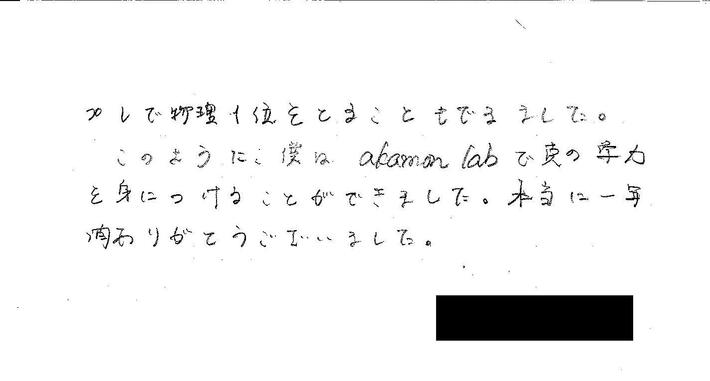 メしで物理1位をとることもできました。
このように、僕は akamon lab で真の学力
を身につけることができました。本当に一年
間ありがとうございました。